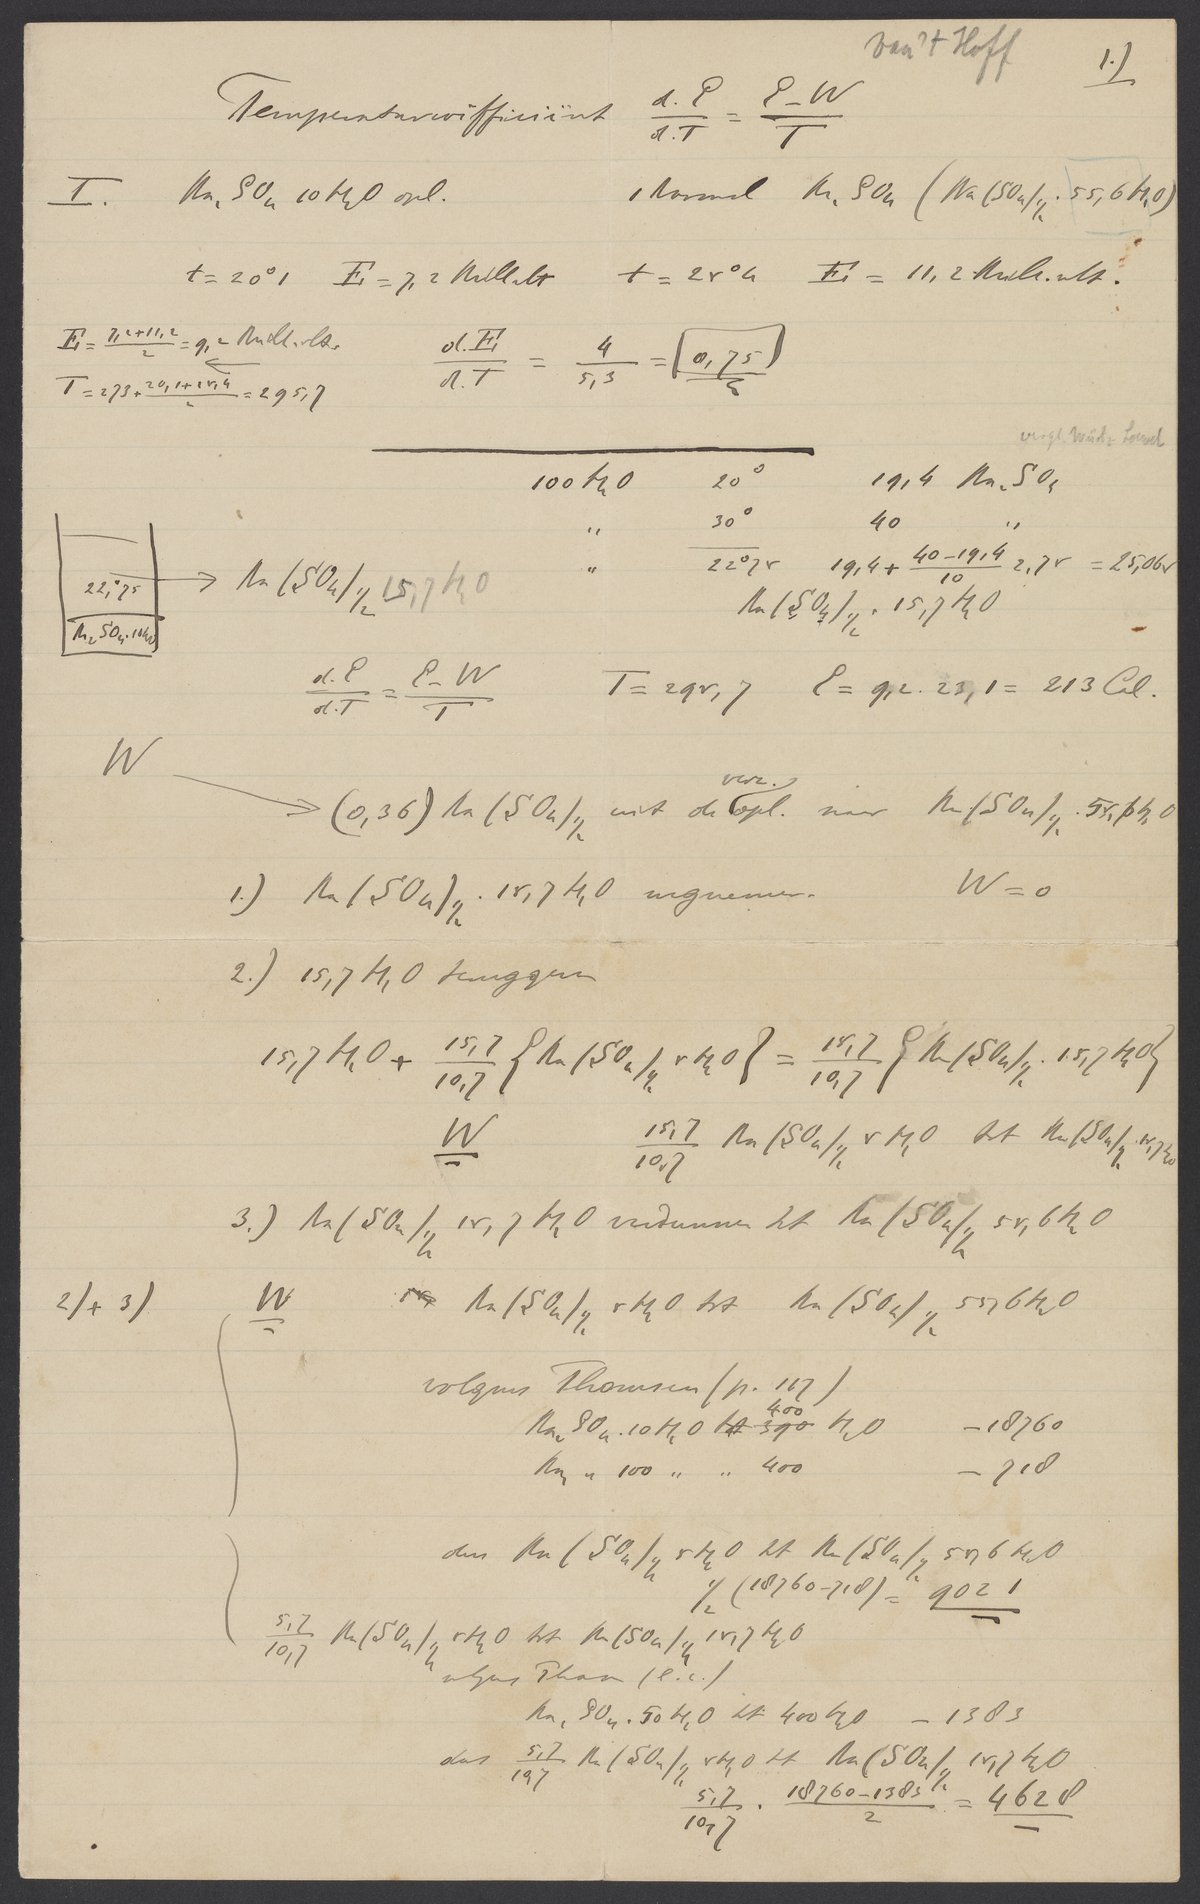 van't Hoff
1.)
Temperaturcoëfficiënt d.E/d.T = E-W/T
I. Na2SO4 10H2O opl. 1 Normal Na2SO4 (Na(SO4)1/2 . 55,6 H2O)
t = 20°1 E = 7,2 Millivolt t = 25°4 E = 11,2 Milli.volt.
E = 7,2+11,2/2 = 9,2 Millivolt. d.E/d.T = 4/5,3 = 0,75
T = 273 + 20,1+25,4/2 = 295,7
100 H2O 20° 19,4 Na2SO4
" 30° 40 "
" 22°75 19,4 + 40-19,4/10 2,75 = 25,065
22,°75 → Na(SO4)1/2 15,7 H2O
Na(SO4)1/2 . 15,7 H2O
Na2SO4.10H2O
d.E/d.T = E-W/T T = 295,7 E = 9,2 . 23,1 = 213 Cal.
W
verz.
→ (0,36) Na(SO4)1/2 uit de opl. naar Na(SO4)1/2 . 55,6 H2O
1.) Na(SO4)1/2 . 15,7 H2O wegnemen. W = 0
2.) 15,7 H2O teruggeven
15,7 H2O + 15,7/10,7 {Na(SO4)1/2 5 H2O} = 15,7/10,7 {Na(SO4)1/2 . 15,7 H2O}
W 15,7/10,7 Na(SO4)1/2 5 H2O tot Na(SO4)1/2 . 15,7 H2O
3.) Na(SO4)1/2 15,7 H2O verdunnen tot Na(SO4)1/2 55,6 H2O
2) + 3) W Na(SO4)1/2 5 H2O tot Na(SO4)1/2 55,6 H2O
volgens Thomsen (p. 117)
400
Na2SO4.10H2O tot 390 H2O - 18760
Na2 " 100 " " 400 - 718
dus Na(SO4)1/2 5 H2O tot Na(SO4)1/2 55,6 H2O
1/2 (18760-718) = 9021
5,7/10,7 Na(SO4)1/2 5 H2O tot Na(SO4)1/2 15,7 H2O
volgens Thom (l.c.)
Na2SO4.50H2O tot 400 H2O - 1383
dus 5,7/10,7 Na(SO4)1/2 5 H2O tot Na(SO4)1/2 15,7 H2O
5,7/10,7 . 18760-1383/2 = 4628